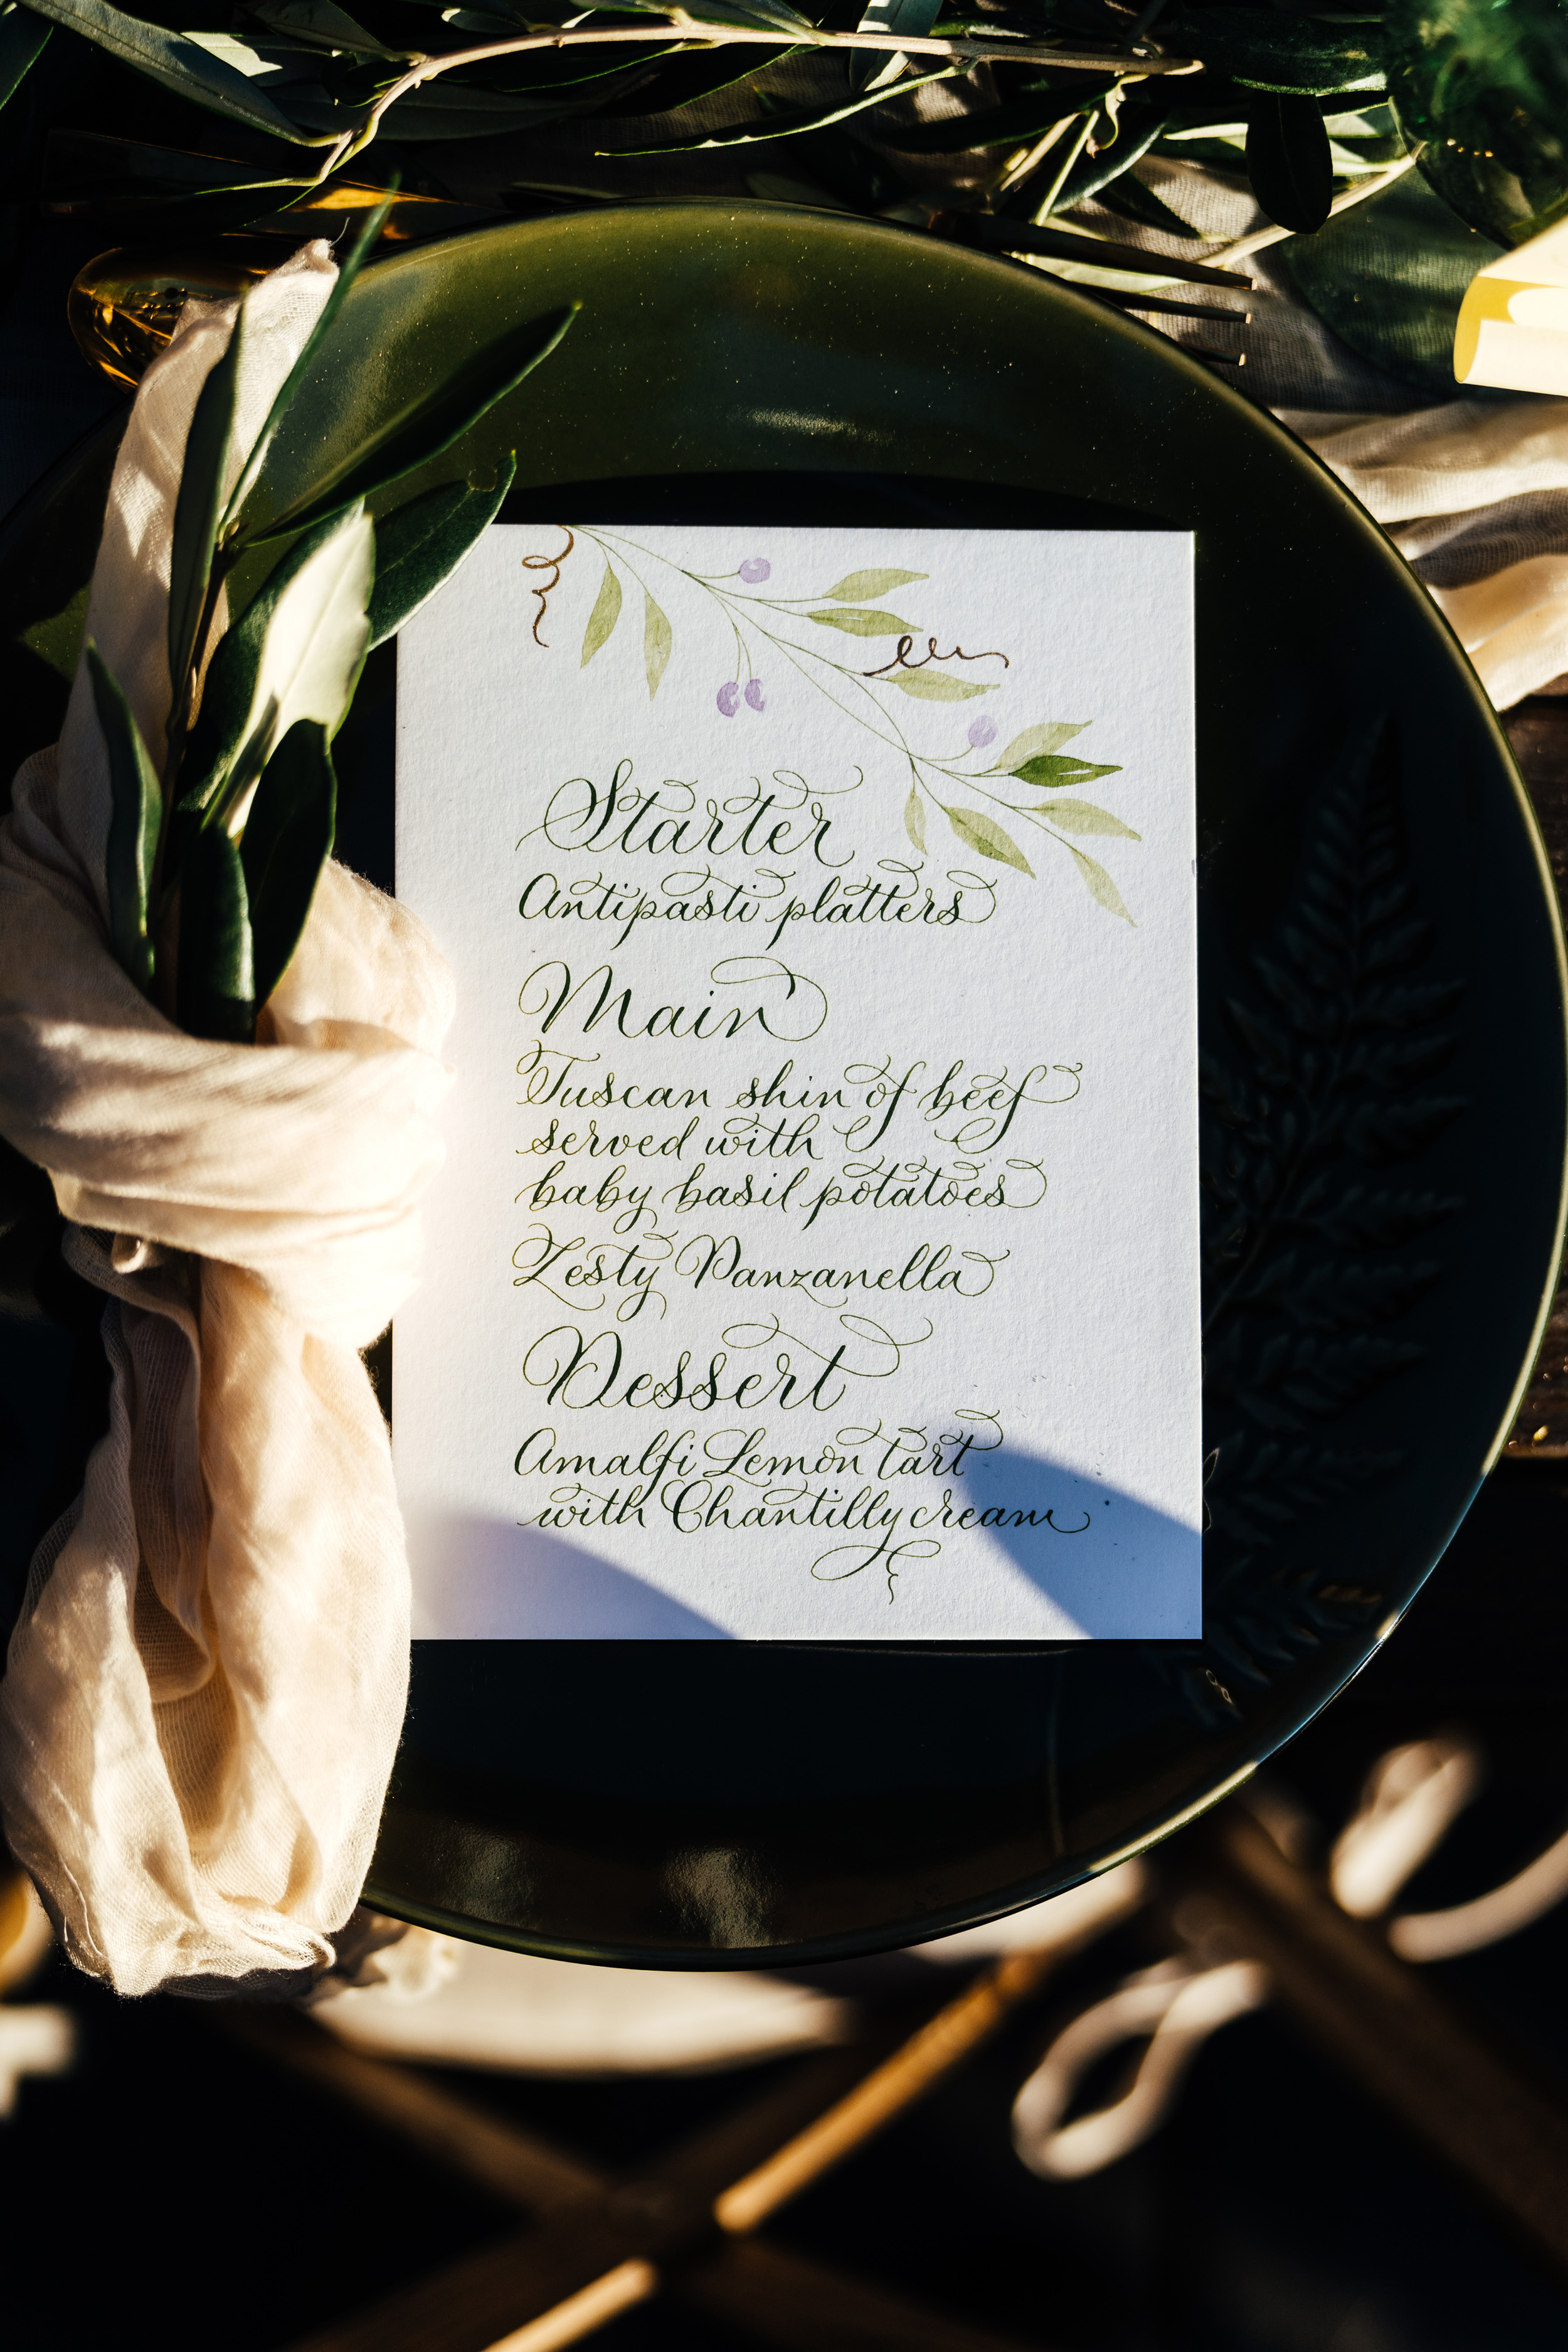 Starter
Antipasti platters
Main
Tuscan shin of beef
served with
baby basil potatoes
Zesty Panzanella
Dessert
Amalfi Lemon tart
with Chantilly cream